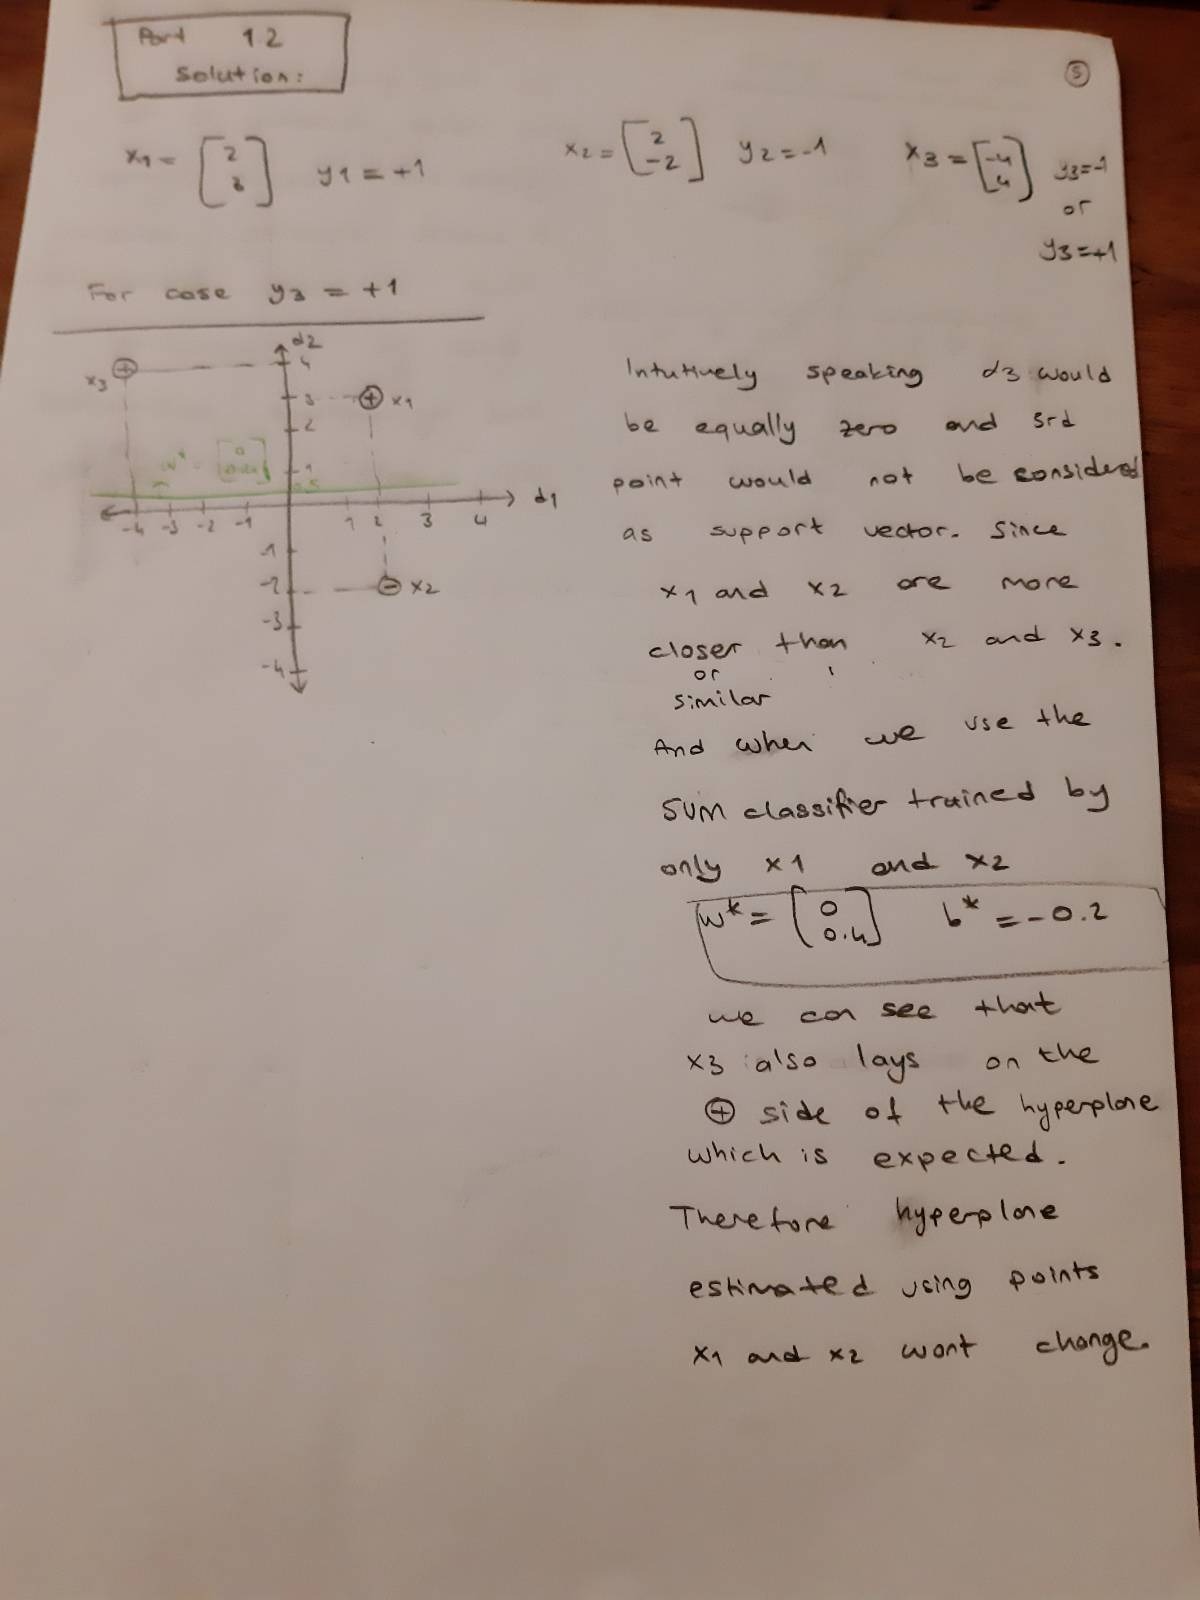 Part 1.2
Solution:
5
x1 = [2 3] y1 = +1
x2 = [2 -2] y2 = -1
x3 = [-4 4] y3=-1
or
y3=+1
For case y3 = +1
d2
x3 + 4
3 + x1
2
w* = [0 0.4] 1
0.5
-4 -3 -2 -1 1 2 3 4 d1
-1
-2 - x2
-3
-4
Intutively speaking d3 would
be equally zero and 3rd
point would not be considered
as support vector. Since
x1 and x2 are more
closer than x2 and x3.
or
similar
And when we use the
SVM classifier trained by
only x1 and x2
w* = [0 0.4] b* = -0.2
we can see that
x3 also lays on the
⊕ side of the hyperplane
which is expected.
Therefore hyperplane
estimated using points
x1 and x2 wont change.